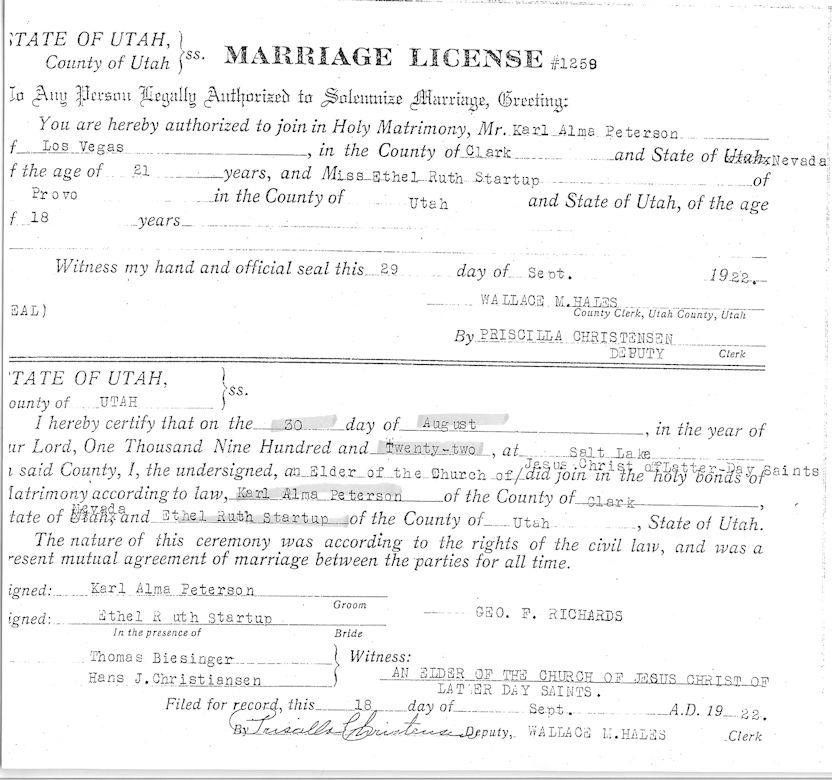 STATE OF UTAH,
County of Utah } ss. MARRIAGE LICENSE #1259
To Any Person Legally Authorized to Solemnize Marriage, Greeting:
You are hereby authorized to join in Holy Matrimony, Mr. Karl Alma Peterson
f Los Vegas, in the County of Clark and State of Utah, Nevada
f the age of 21 years, and Miss Ethel Ruth Startup of
Provo in the County of Utah and State of Utah, of the age
f 18 years
Witness my hand and official seal this 29 day of Sept. 1922.
WALLACE M.HALES
EAL) County Clerk, Utah County, Utah
By PRISCILLA CHRISTENSEN
DEPUTY Clerk
TATE OF UTAH,
ounty of UTAH } ss.
I hereby certify that on the 30 day of August, in the year of
ur Lord, One Thousand Nine Hundred and Twenty-two, at Salt Lake
n said County, I, the undersigned, an Elder of the Church of/Jesus Christ of Latter-Day Saints did join in the holy bonds of
Matrimony according to law, Karl Alma Peterson of the County of Clark,
tate of Utah, Nevada and Ethel Ruth Startup of the County of Utah, State of Utah.
The nature of this ceremony was according to the rights of the civil law, and was a
resent mutual agreement of marriage between the parties for all time.
igned: Karl Alma Peterson
Groom
igned: Ethel R uth Startup GEO. F. RICHARDS
In the presence of Bride
Thomas Biesinger } Witness:
Hans J.Christiansen AN ELDER OF THE CHURCH OF JESUS CHRIST OF
LATTER DAY SAINTS.
Filed for record, this 18 day of Sept. A.D. 1922.
By Priscilla Christensen Deputy, WALLACE M.HALES Clerk